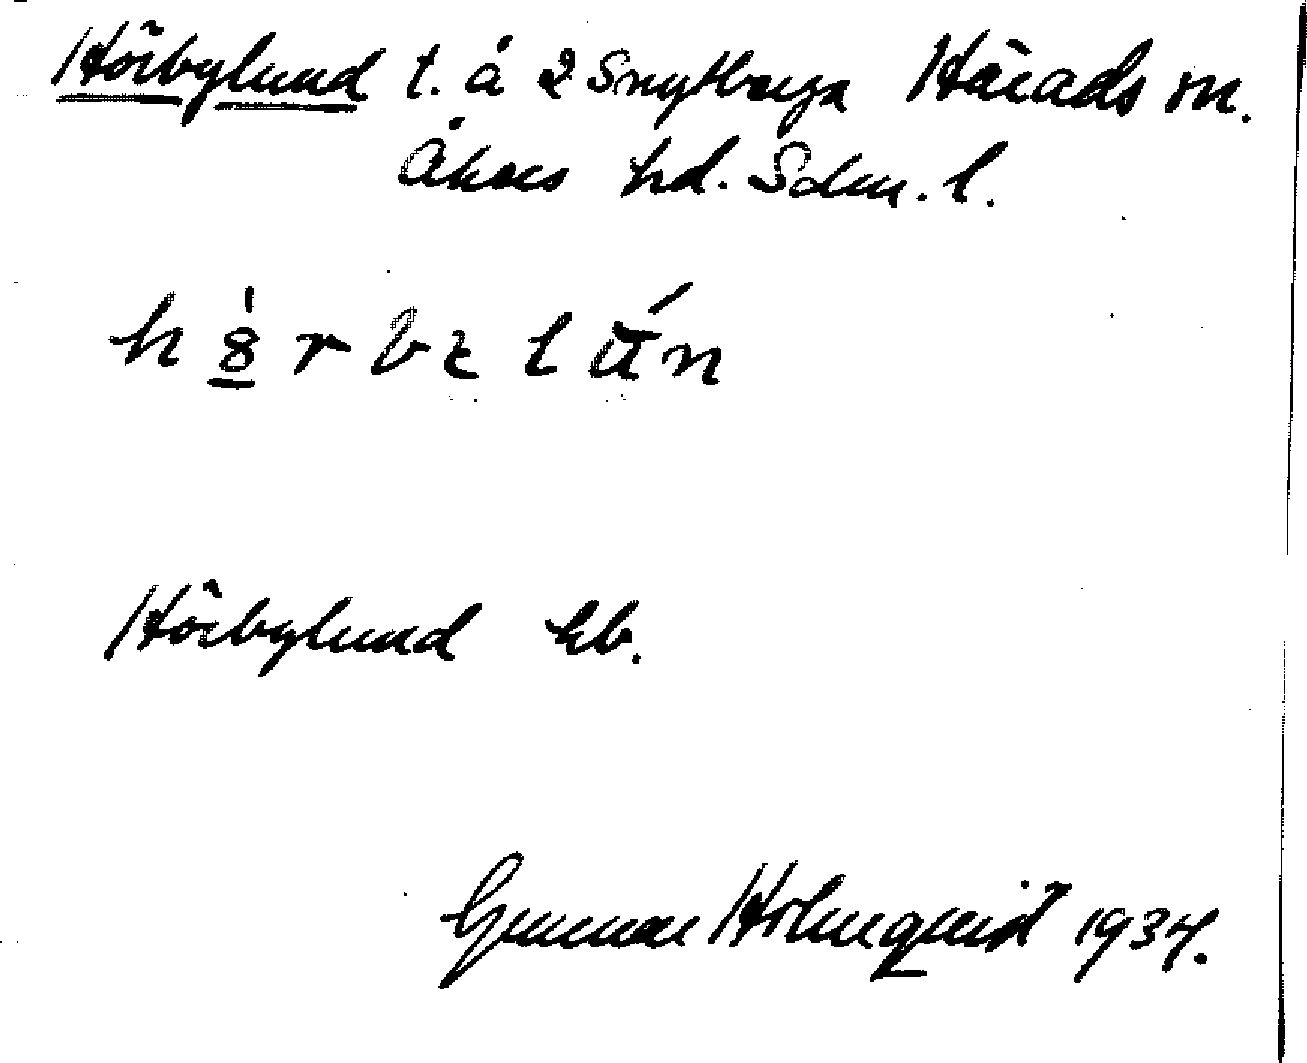 Hörbylund t. å 2 Snytbyga Härads sn.
Åkers hd. Sdm. l.
Hörbylund kb.
Gunnar Holmqvist 1934.